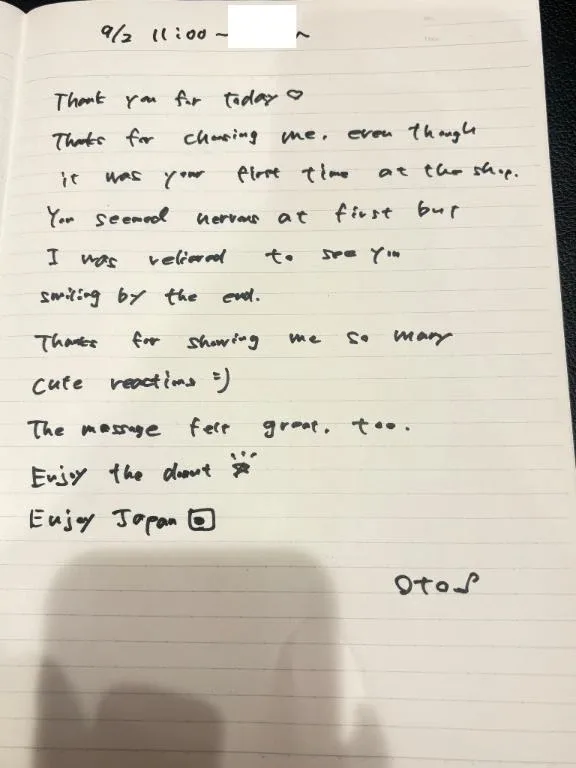 9/2 11:00 ~ ~
Thank you for today ♡
Thanks for choosing me, even though
it was your first time at the shop.
You seemed nervous at first but
I was relieved to see you
smiling by the end.
Thanks for showing me so many
cute reactions =)
The message felt great, too.
Enjoy the donut
Enjoy Japan
Oto♪